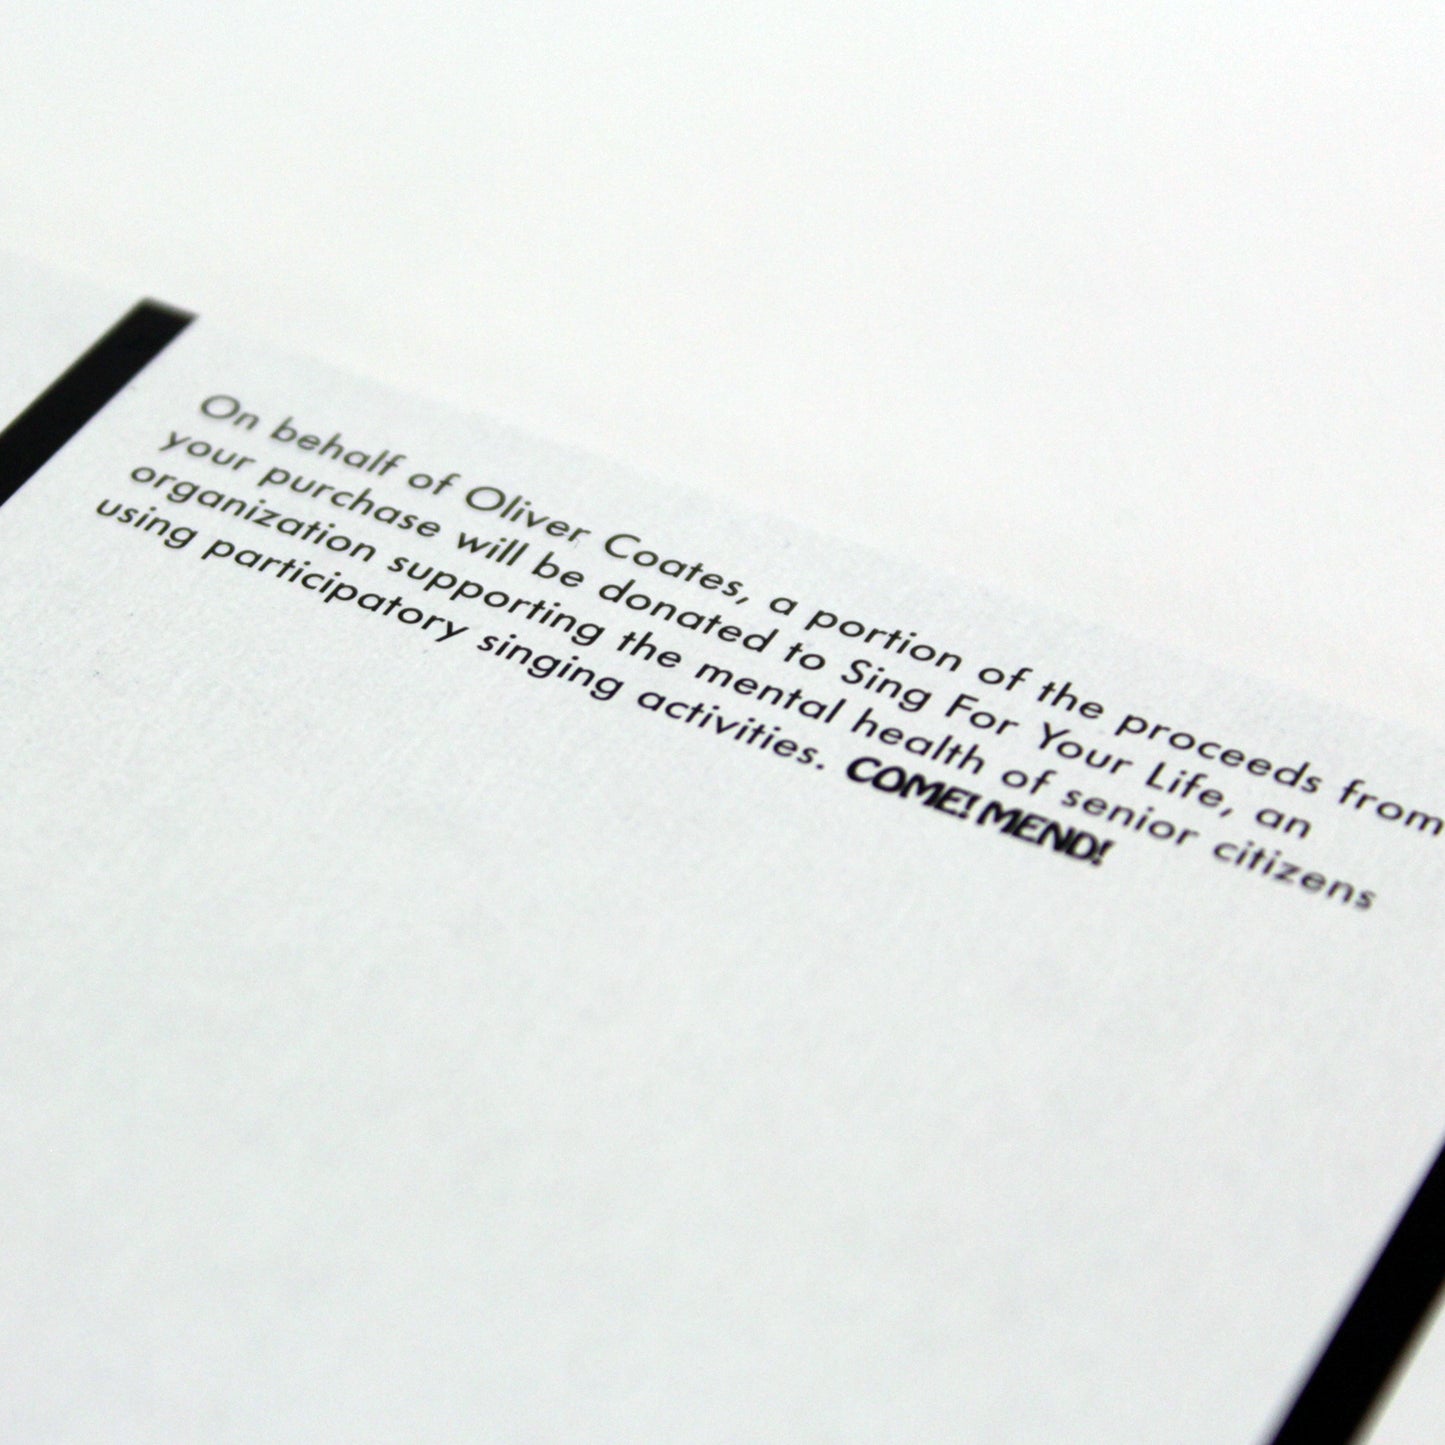 On behalf of Oliver Coates, a portion of the proceeds from
your purchase will be donated to Sing For Your Life, an
organization supporting the mental health of senior citizens
using participatory singing activities. COME! MEND!